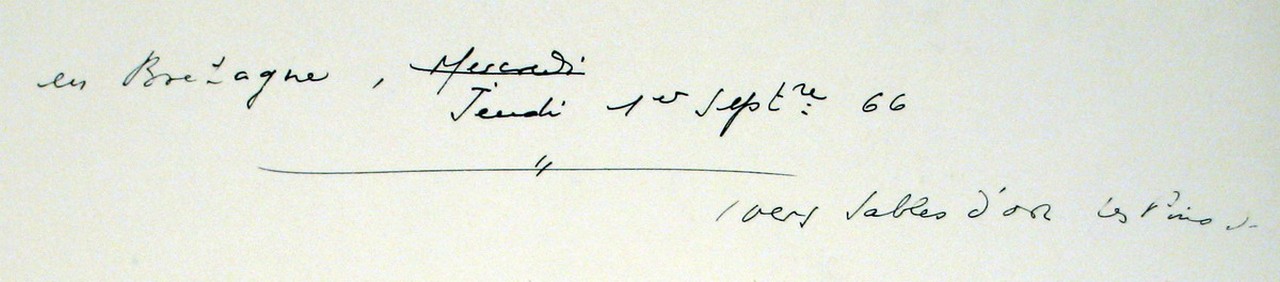 en Bretagne, ~~Mercredi~~
Jeudi 1er Septre 66
(vers Sables d'or les Pins).